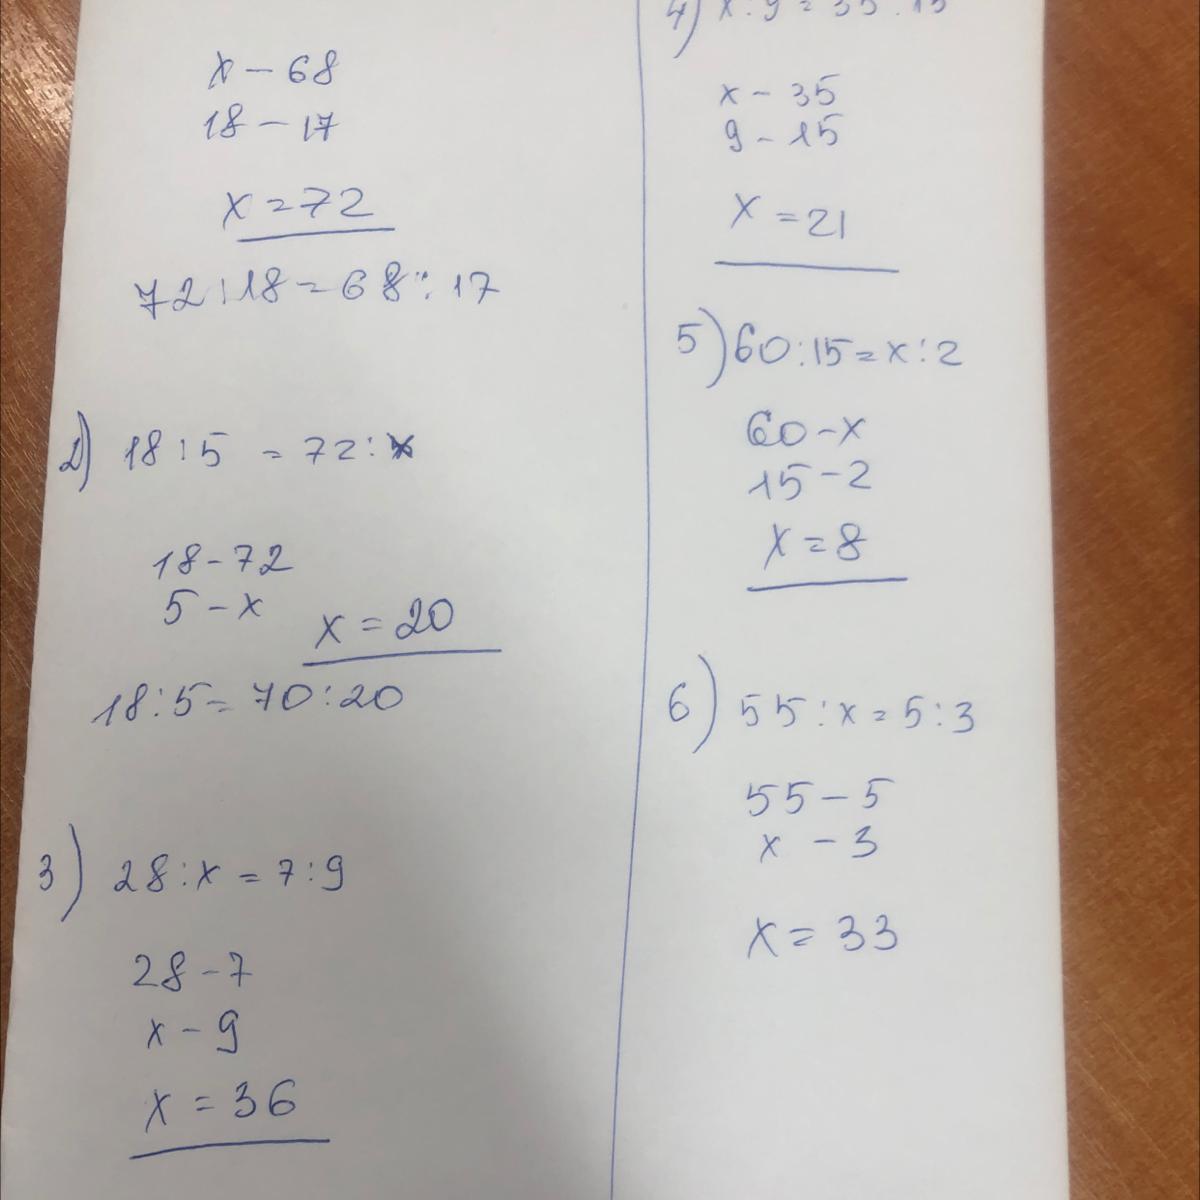 x - 68
18 - 17
x = 72
72 : 18 = 68 : 17
2) 18 : 5 = 72 : x
18 - 72
5 - x
x = 20
18 : 5 = 70 : 20
3) 28 : x = 7 : 9
28 - 7
x - 9
x = 36
4) x : 9 = 35 : 15
x - 35
9 - 15
x = 21
5) 60 : 15 = x : 2
60 - x
15 - 2
x = 8
6) 55 : x = 5 : 3
55 - 5
x - 3
x = 33